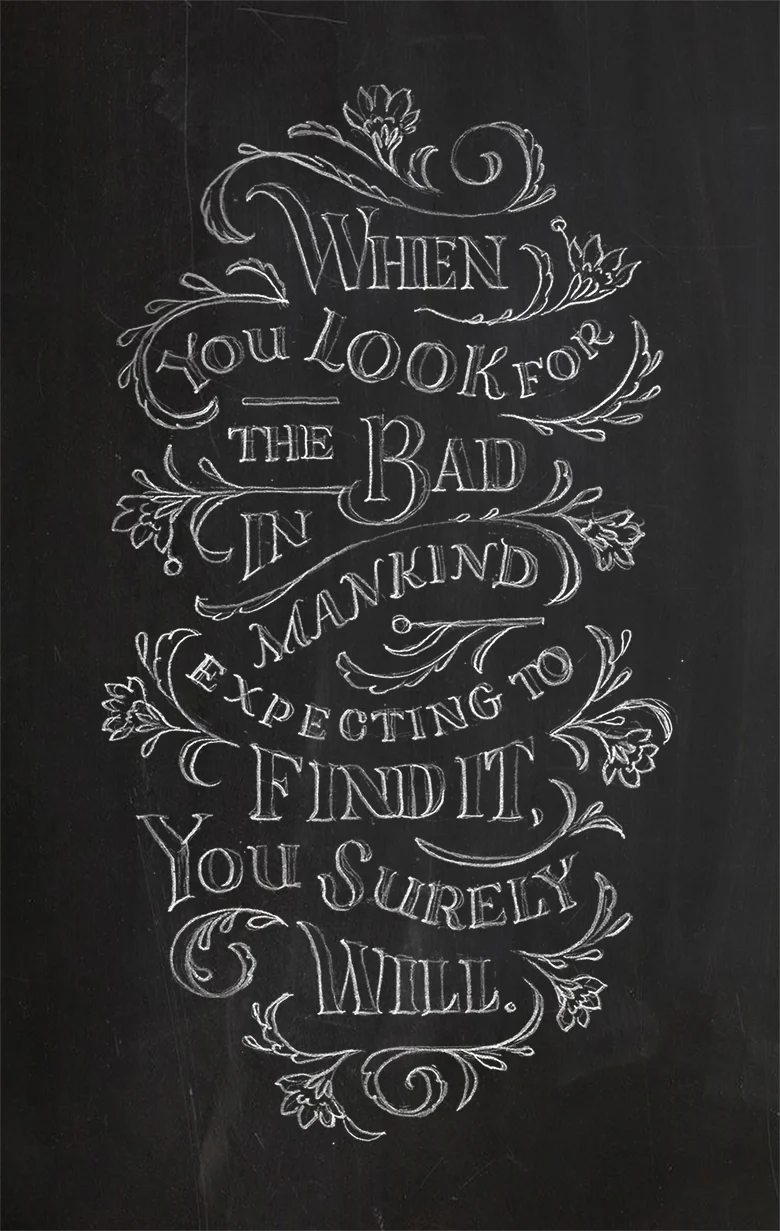 WHEN
YOU LOOK FOR
THE BAD
IN
MANKIND
EXPECTING TO
FIND IT,
YOU SURELY
WILL.